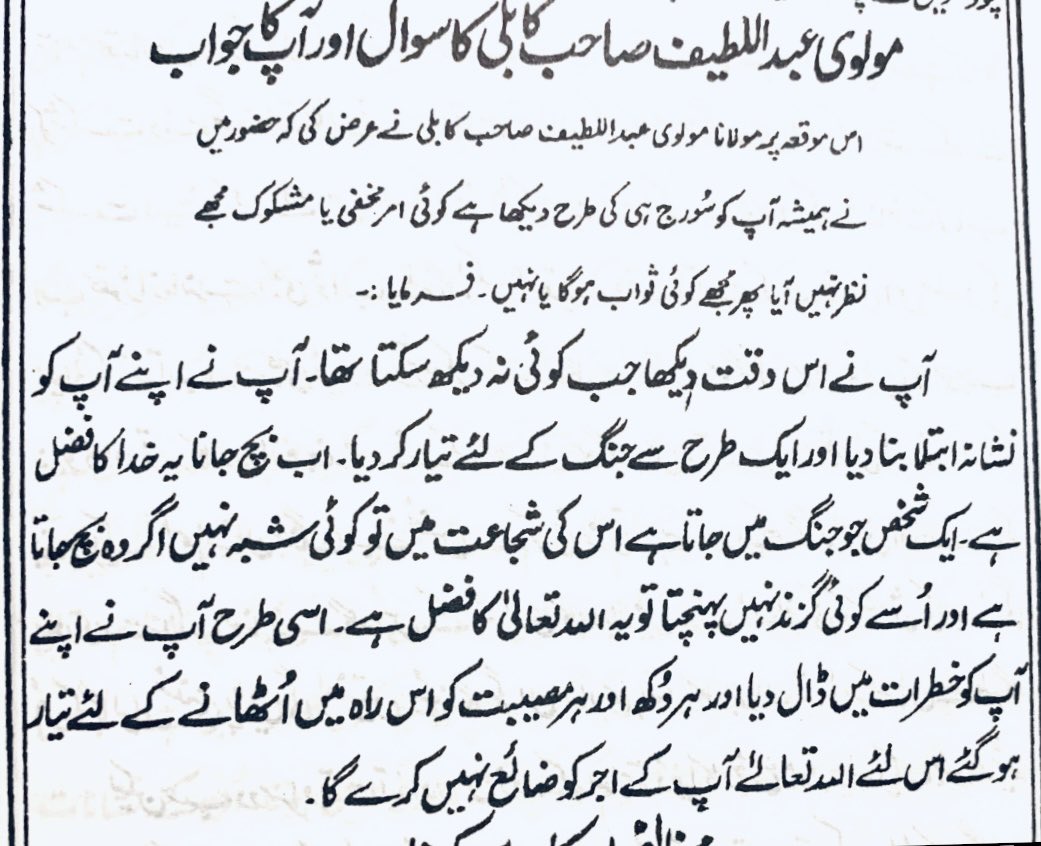 مولوی عبداللطیف صاحب کابلی کا سوال اور آپ کا جواب
اس موقعہ پر مولانا مولوی عبداللطیف صاحب کابلی نے عرض کی کہ حضور میں
نے ہمیشہ آپ کو سُورج ہی کی طرح دیکھا ہے کوئی امر مخفی یا مشکوک مجھے
نظر نہیں آیا پھر مُجھے کوئی ثواب ہوگا یا نہیں۔ فرمایا :۔
آپ نے اس وقت دیکھا جب کوئی نہ دیکھ سکتا تھا۔ آپ نے اپنے آپ کو
نشانہ ابتلا بنا دیا اور ایک طرح سے جنگ کے لئے تیار کر دیا۔ اب بچ جانا یہ خدا کا فضل
ہے۔ ایک شخص جو جنگ میں جاتا ہے اس کی شجاعت میں تو کوئی شبہ نہیں اگر وہ بچ جاتا
ہے اور اُسے کوئی گزند نہیں پہنچتا تو یہ اللہ تعالیٰ کا فضل ہے۔ اسی طرح آپ نے اپنے
آپ کو خطرات میں ڈال دیا اور ہر دُکھ اور ہر مصیبت کو اس راہ میں اُٹھانے کے لئے تیار
ہو گئے اس لئے اللہ تعالےٰ آپ کے اجر کو ضائع نہیں کرے گا۔